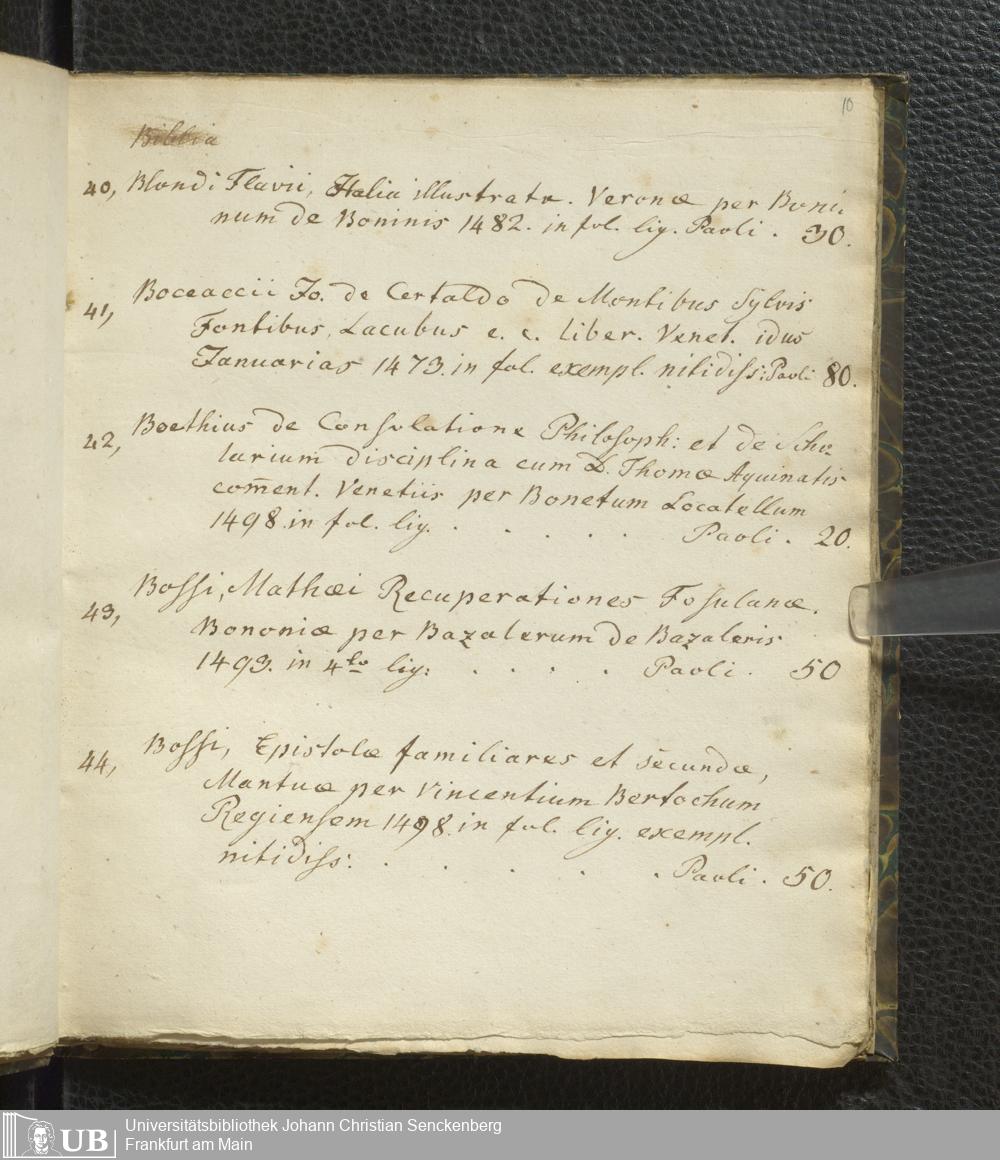 10
Bibbia
40, Blondi Flavii, Italia illustrata. Veronæ per Boni:
num de Boninis 1482. in fol. lig. Paoli . 30.
41, Boceaccii Jo. de Certaldo de Montibus Sÿlvis
Fontibus, Lacubus e. c. liber. Venet. idus
Januarias 1473. in fol. exempl. nitidiss: Paoli 80.
42, Boethius de Consolatione Philosoph: et de Scho:
larium disciplina cum D. Thomæ Aquinatis
com̄ent. Venetiis per Bonetum Locatellum
1498. in fol. lig. . . . . . Paoli . 20.
43, Bossi, Mathæi Recuperationes Fesulanæ.
Bononiæ per Bazalerum de Bazaleris
1493. in 4to lig: . . . . Paoli . 50
44, Bossi, Epistolæ familiares et secundæ,
Mantuæ per Vincentium Bertochum
Regiensem 1498. in fol. lig. exempl.
nitidiss: . . . . . Paoli . 50.
UB
Universitätsbibliothek Johann Christian Senckenberg
Frankfurt am Main